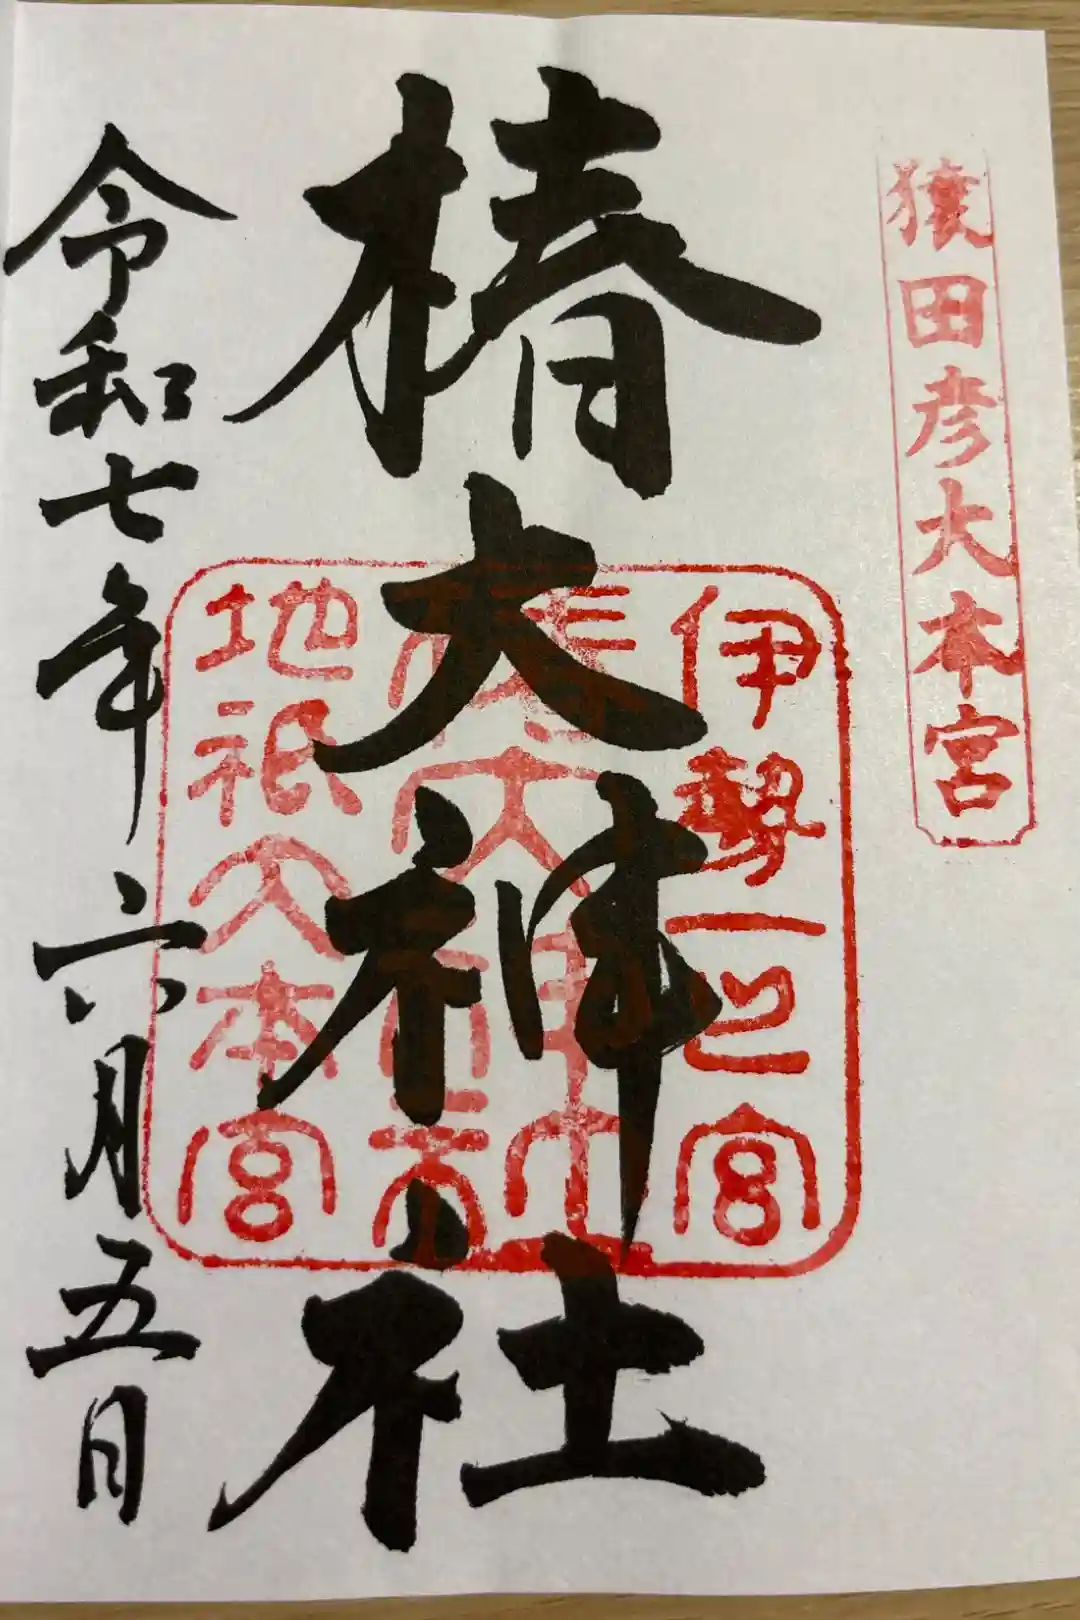 猿田彦大本宮
椿大神社
伊勢一之宮
椿大神社
地祇大本宮
令和七年六月五日